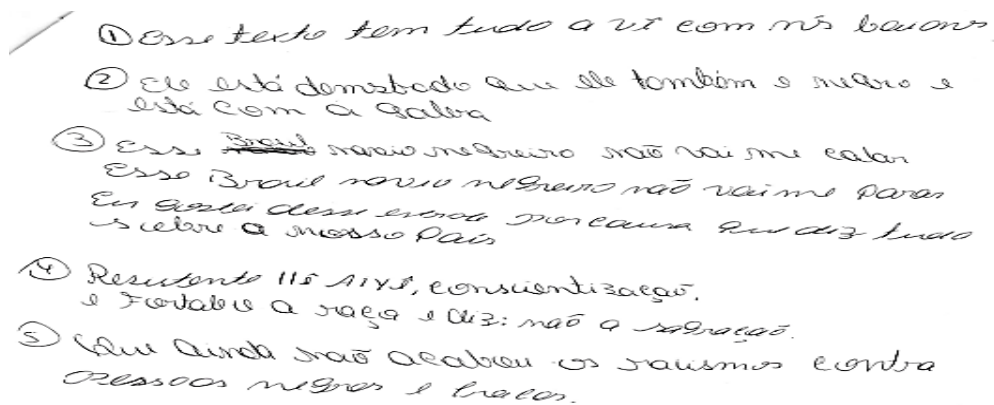 ① Esse texto tem tudo a vê com nós baians
② Ele está demstrado que ele também e negro e
está com a galera
③ Esse Brasil navio negreiro não vai me calar
Esse Brasil navio negreiro não vai me parar
Eu gostei desse porcausa que diz tudo
sobre a nosso País
④ Resistente conscientização.
e Fortalece a raça e diz: não a segregação.
⑤ Que ainda não acabou os racismos contra
pessoas negras e